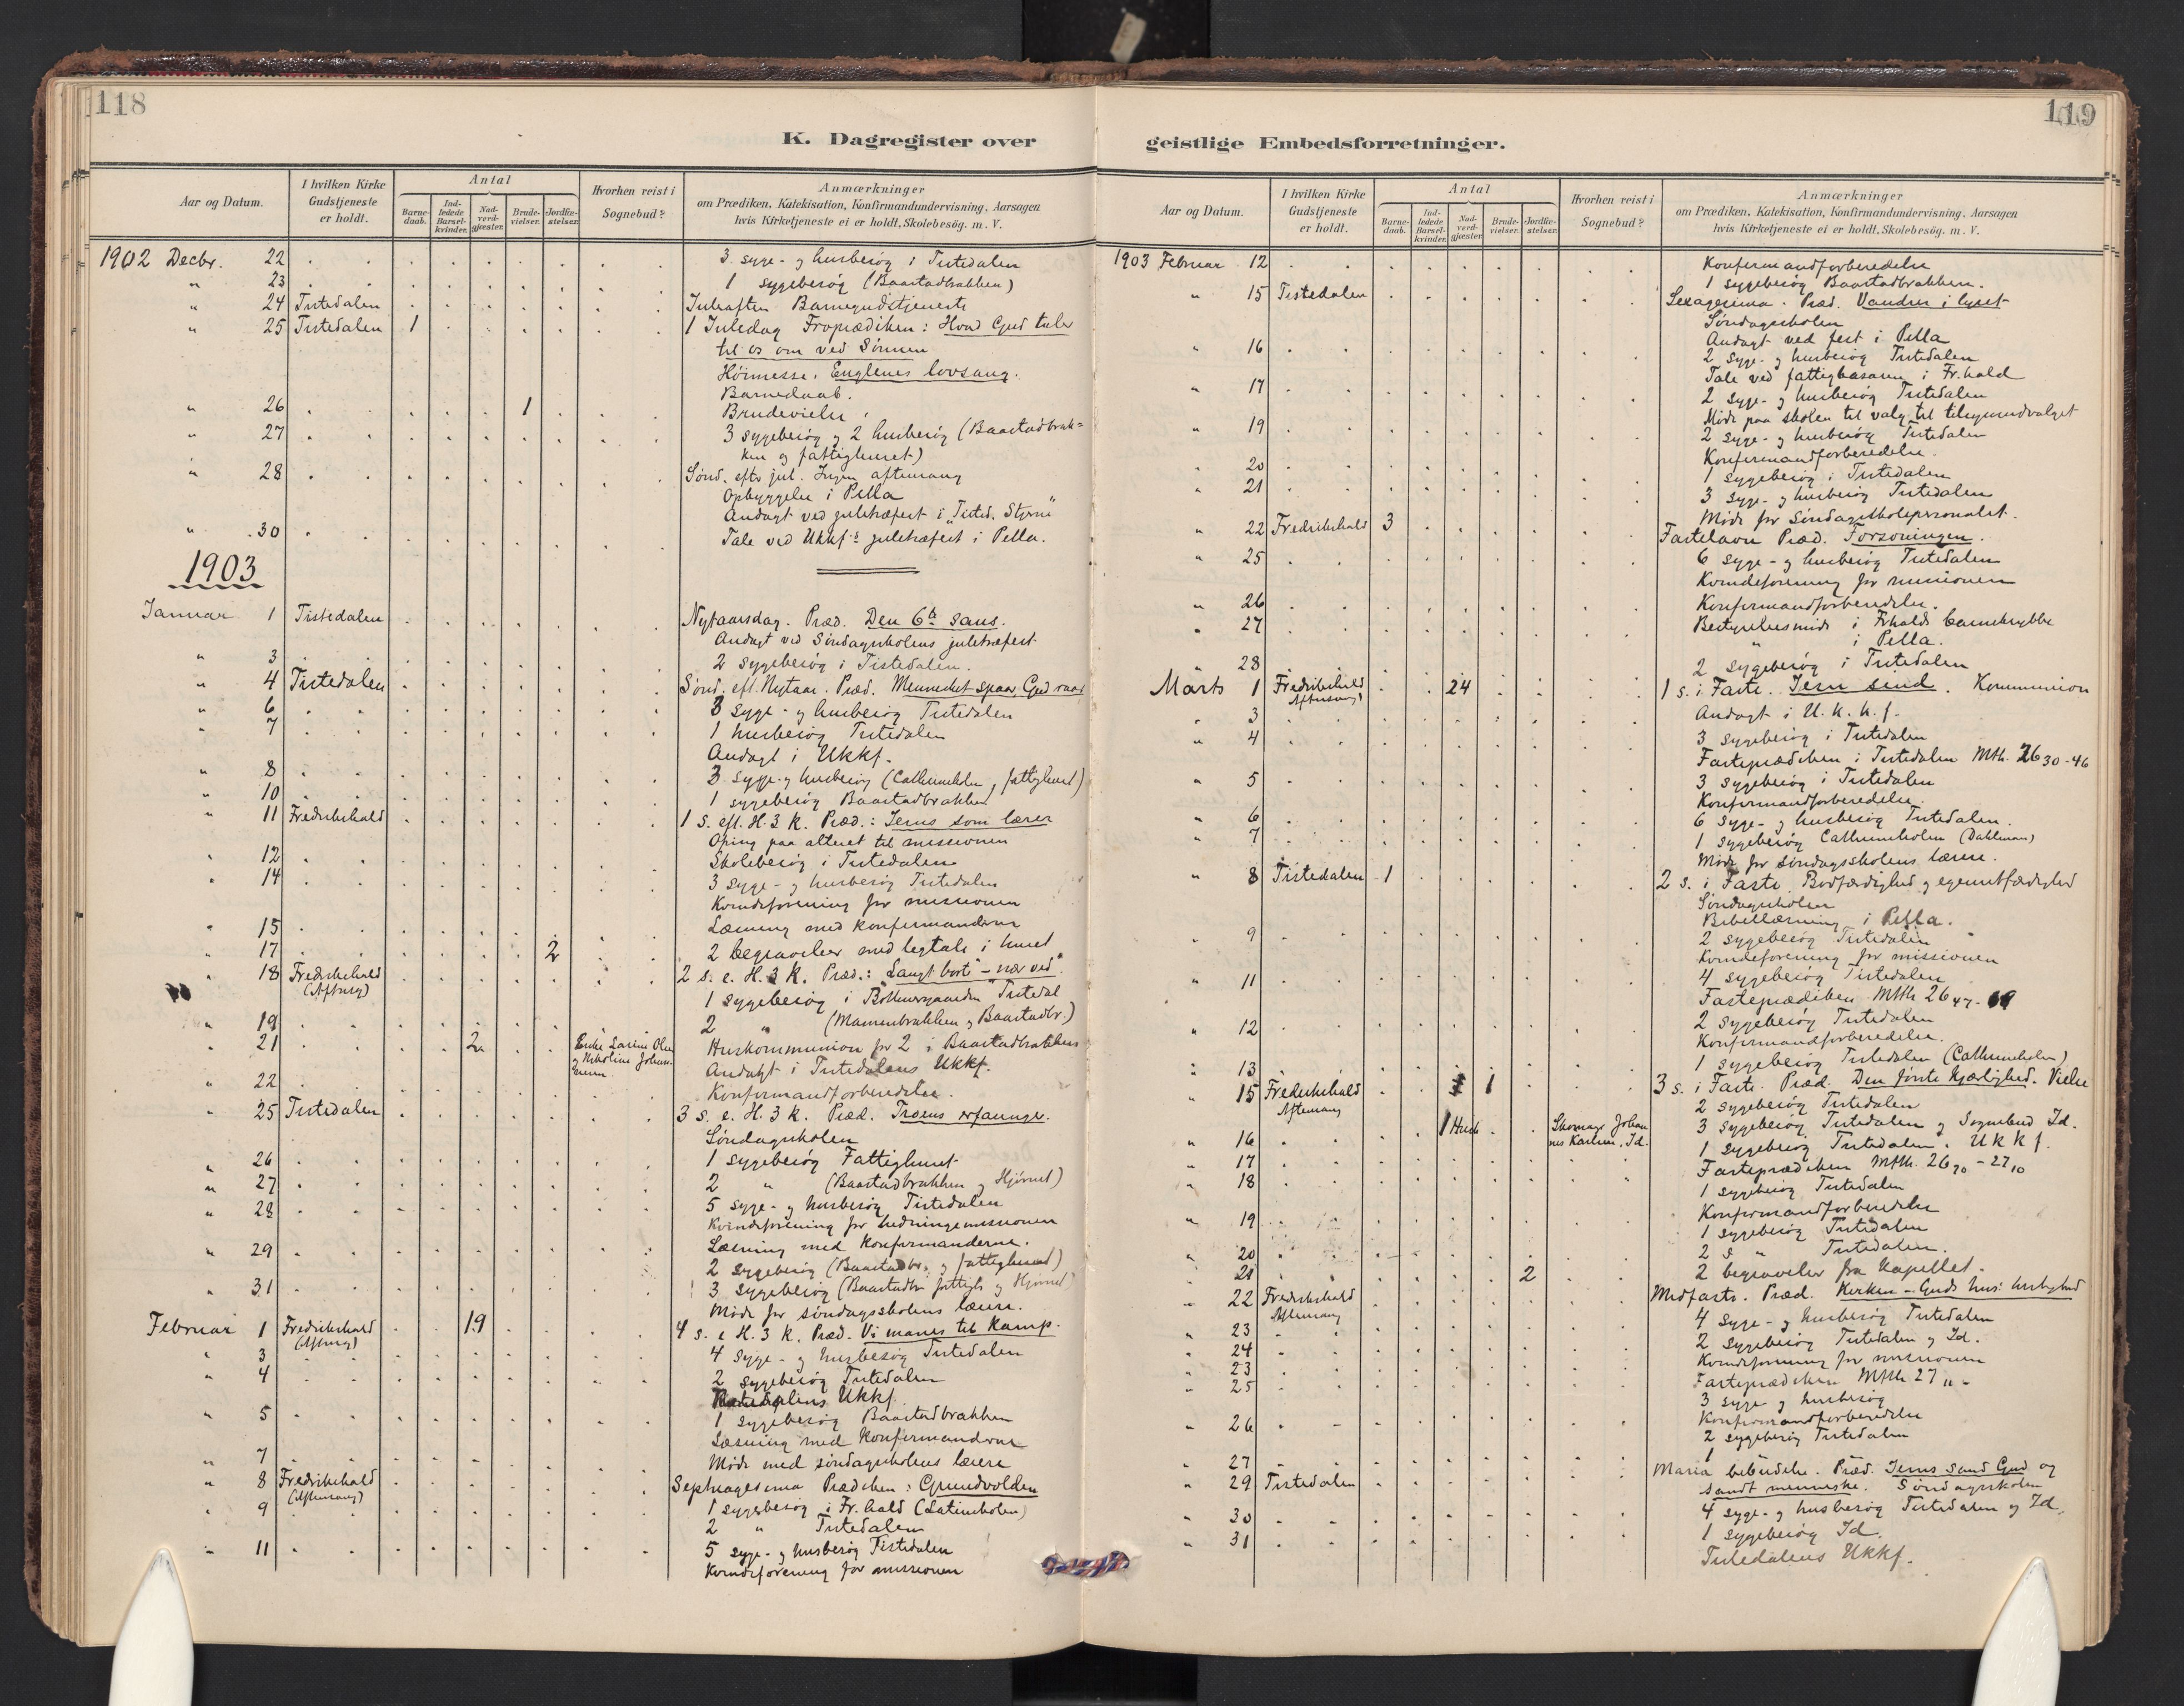 118
K. Dagregister over
Aar og Datum.
I hvilken Kirke Gudstjeneste er holdt.
Antal
Barnedaab.
Indledede Barselkvinder.
Nadverdgjæster.
Brudevielser.
Jordfæstelser.
Hvorhen reist i Sognebud?
Anmærkninger
om Prædiken, Katekisation, Konfirmandundervisning, Aarsagen
hvis Kirketjeneste ei er holdt, Skolebesög. m. V.
1902 Decbr. 22 3 syge- og husbesøg i Tistedalen
" 23 1 sygebesøg (Baastadbrakken)
" 24 Tistedalen Juleaften Barnegudstjeneste
" 25 Tistedalen 1 1 Juledag Froprædiken: Hvad Gud taler
til os om ved Sønnen
Høimesse. Englenes lovsang.
Barnedaab.
" 26 1 Brudevielse
" 27 3 sygebesøg og 2 husbesøg (Baastadbrak=
ken og fattighuset)
" 28 Sønd. efter jul. Ingen aftensang
Opbyggelse i Pella
Andagt ved juletræfest i "Tisted. Stjerne"
" 30 Tale ved Ukkf's juletræfest i Pella.
1903
Januar 1 Tistedalen Nytaarsdag. Præd. Den 6te sans.
Andagt ved Søndagsskolens juletræfest
" 3 2 sygebesøg i Tistedalen.
" 4 Tistedalen Sønd. eft. Nytaar. Præd. Mennesket spaar, Gud raar
" 6 3 syge- og husbesøg Tistedalen
" 7 1 husbesøg Tistedalen
Andagt i Ukkf.
" 8 3 syge- og husbesøg (Cathrineholm, fattighuset)
" 10 1 sygebesøg Baastadbrakken
" 11 Fredrikshald 1 S. eft. H. 3 K. Præd.: Jesus som lærer
Ofring paa alteret til missionen
" 12 Skolebesøg i Tistedalen
" 14 3 syge- og husbesøg Tistedalen
Kvindeforening for missionen
" 15 Læsning med konfirmanderne
" 17 2 2 begravelser med ligtale i huset
" 18 Fredrikshald 2 s. e. H. 3 K. Præd.: "Langt bort" - "nær ved".
(Aftensg) 1 sygebesøg i Tistedal
" 19 2 " (Mansenbrakken og Baastadbr.)
" 21 2 Enke Larine Olsen Huskommunion for 2 i Baastadbrakken
Andagt i Tistedalens Ukkf.
" 22 Konfirmandforberedelse.
" 25 Tistedalen 3 s. e. H. 3 K. Præd. Troens erfaringer.
Søndagsskolen
" 26 1 sygebesøg Fattighuset
" 27 2 " (Baastadbrakken og Hjørnet)
" 28 5 syge- og husbesøg Tistedalen
Kvindeforening for hedningemissionen
" 29 Læsning med konfirmanderne.
2 sygebesøg (Baastadbr. og fattighuset)
" 31 3 sygebesøg (Baastadbr. fattigh. og Hjørnet)
Møde for søndagsskolens lærere.
Februar 1 Fredrikshald 19 4 s. e H. 3 K. Præd. Vi manes til kamp.
(Aftensg)
" 3 4 syge- og husbesøg Tistedalen
" 4 2 sygebesøg Tistedalen
Tistedalens Ukkf.
" 5 1 sygebesøg Baastadbrakken
Læsning med Konfirmanderne
" 7 Møde med søndagsskolens lærere
" 8 Fredrikshald Septuagesima Prædiken: Grundvolden
(Aftensang)
" 9 1 sygebesøg i Fr.hald (Latinskolen)
2 " Tistedalen
" 11 5 syge- og husbesøg Tistedalen
Kvindeforening for missionen
119
geistlige Embedsforretninger.
Aar og Datum.
I hvilken Kirke Gudstjeneste er holdt.
Antal
Barnedaab.
Indledede Barselkvinder.
Nadverdgjæster.
Brudevielser.
Jordfæstelser.
Hvorhen reist i Sognebud?
Anmærkninger
om Prædiken, Katekisation, Konfirmandundervisning, Aarsagen
hvis Kirketjeneste ei er holdt, Skolebesög. m. V.
1903 Februar 12 Konfirmandforberedelse
1 sygebesøg Baastadbrakken.
" 15 Tistedalen Sexagesima. Præd. Vandrer i lyset
Søndagsskolen
Andagt ved fest i Pella
" 16 2 syge- og husbesøg Tistedalen
Tale ved fattigbasaren i Fr.hald
" 17 2 syge- og husbesøg Tistedalen
Møde paa skolen til valg til tilsynsudvalget
" 19 2 syge- og husbesøg Tistedalen
Konfirmandforberedelse.
" 20 1 sygebesøg i Tistedalen
" 21 3 syge- og husbesøg Tistedalen
Møde for Søndagsskolepersonalet.
" 22 Fredrikshald 3 Fastelavn Præd. Forsoningen.
" 25 6 syge- og husbesøg Tistedalen
Kvindeforening for missionen
" 26 Konfirmandforberedelse.
" 27 Bestyrelsesmøde i Frhalds barnekrybbe
" i Pella.
28 2 sygebesøg i Tistedalen
Marts 1 Fredrikshald 24 1 s. i Faste. Jesu sind. Kommunion
Aftensang
" 3 Andagt i U.k.k.f.
" 4 3 sygebesøg i Tistedalen
Fasteprædiken i Tistedalen Mth. 26 30-46
" 5 3 sygebesøg i Tistedalen
Konfirmandforberedelse.
" 6 6 syge- og husbesøg Tistedalen.
" 7 1 sygebesøg Cathrineholm (Dahlman)
Møde for søndagsskolens lærere.
" 8 Tistedalen 1 2 s. i Faste. Bodfærdighed og egenretfærdighed
Søndagsskolen
Bibellæsning i Pella.
" 9 2 sygebesøg Tistedalen
Kvindeforening for missionen
" 11 4 sygebesøg Tistedalen
Fasteprædiken Mtth 26 47-69
" 12 2 sygebesøg Tistedalen
Konfirmandforberedelse.
" 13 1 sygebesøg Tistedalen (Cathrineholm)
" 15 Fredrikshald 1 3 s. i Faste. Præd. Den første Kjærlighed. Vielse
Aftensang 2 sygebesøg Tistedalen
" 16 1 Husk. Skomager Johannes Karlsen, Id. 3 sygebesøg Tistedalen og Sognebud Id.
" 17 1 sygebesøg Tistedalen. Ukkf.
" 18 Fasteprædiken Mtth. 26 70 - 27 10
1 sygebesøg Tistedalen
" 19 Konfirmandforberedelse
1 sygebesøg Tistedalen
" 20 2 s " Tistedalen.
" 21 2 2 begravelser fra kapellet.
" 22 Fredrikshald Midfaste. Præd. Kirken - Guds hus:
Aftensang
" 23 4 syge- og husbesøg Tistedalen
" 24 2 sygebesøg Tistedalen og Id.
" 23 Kvindeforening for missionen
" 25 Fasteprædiken Mtth 27 11 -
3 syge og husbesøg
" 26 Konfirmandforberedelse
2 sygebesøg Tistedalen
" 27 1 "
" 29 Tistedalen Maria bebudelse. Præd. Jesus sand Gud og
sandt menneske. Søndagsskolen
" 30 4 syge- og husbesøg Tistedalen og Id.
" 31 1 sygebesøg Id.
Tistedalens Ukkf.